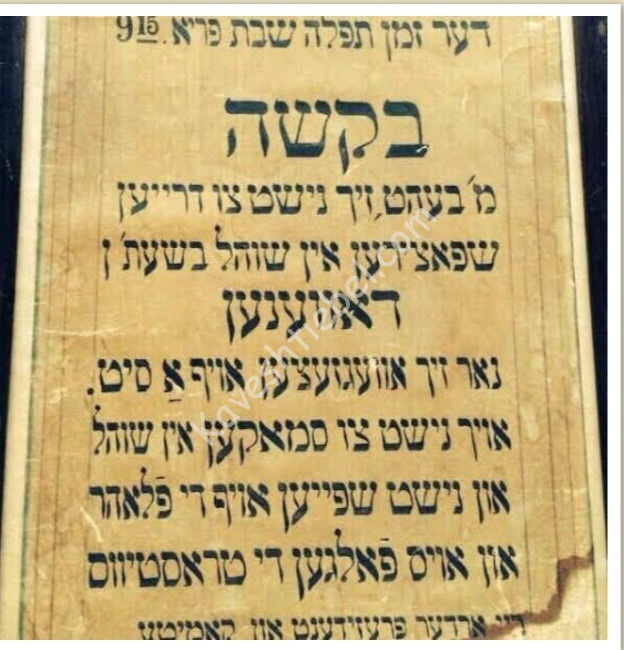 דער זמן תפלה שבת פריא. 9<u>15</u>
בקשה
מ' בעהט, זיך נישט צו דרייען
שפאצירען אין שוהל בשעת'ן
דאווענען
נאר זיך אוועגזעצען אויף אַ סיט.
אויך נישט צו סמאקען אין שוהל
און נישט שפייען אויף די פֿלאהר
און אויס פֿאלגען די טראסטיווס
ביי ארדער פרעזידענט און קאמיטע
Kaveshtiebel.com